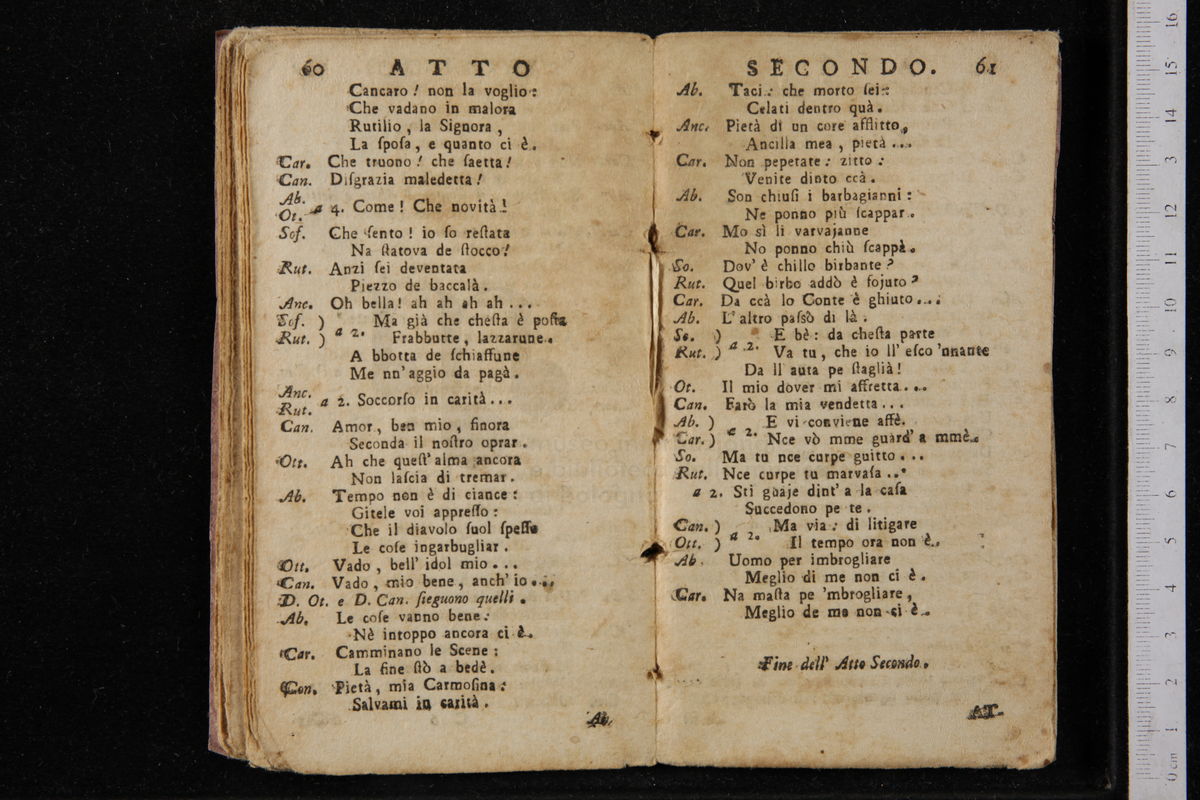 60 ATTO
Cancaro! non la voglio:
Che vadano in malora
Rutilio, la Signora,
La ſpoſa, e quanto ci è.
Car. Che truono! che ſaetta!
Can. Diſgrazia maledetta!
Ab.
Ot. a 4. Come! Che novità!
Sof. Che ſento! io ſo reſtata
Na ſtatova de ſtocco!
Rut. Anzi ſei deventata
Piezzo de baccalà.
Anc. Oh bella! ah ah ah ah ...
Sof. ) Ma già che cheſta è poſta
Rut. ) a 2. Frabbutte, lazzarune.
A bbotta de ſchiaffune
Me nn'aggio da pagà.
Anc.
Rut. a 2. Soccorſo in carità...
Can. Amor, ben mio, finora
Seconda il noſtro oprar.
Ott. Ah che queſt'alma ancora
Non laſcia di tremar.
Ab. Tempo non è di ciance:
Gitele voi appreſſo:
Che il diavolo ſuol ſpeſſo
Le coſe ingarbugliar.
Ott. Vado, bell' idol mio...
Can. Vado, mio bene, anch' io....
D. Ot. e D. Can. ſieguono quelli.
Ab. Le coſe vanno bene:
Nè intoppo ancora ci è.
Car. Camminano le Scene:
La fine ſtò a bedè.
Con. Pietà, mia Carmoſina:
Salvami in carità.
Ab.
SECONDO. 61
Ab. Taci: che morto ſei:
Celati dentro quà.
Anc. Pietà di un core afflitto,
Ancilla mea, pietà...
Car. Non pepetate: zitto:
Venite dinto ccà.
Ab. Son chiuſi i barbagianni:
Ne ponno più ſcappar.
Car. Mo sì li varvajanne
No ponno chiù ſcappè.
So. Dov' è chillo birbante?
Rut. Quel birbo addò è fojuto?
Car. Da ccà lo Conte è ghiuto....
Ab. L' altro paſsò di là.
So. ) E bè: da cheſta parte
Rut. ) a 2. Va tu, che io ll' eſco 'nnante
Da ll' auta pe ſtaglià!
Ot. Il mio dover mi affretta....
Can. Farò la mia vendetta...
Ab. ) E vi conviene affè.
Car. ) a 2. Nce vò mme guard' a mmè.
So. Ma tu nce curpe guitto...
Rut. Nce curpe tu marvaſa...
a 2. Sti guaje dint' a la caſa
Succedono pe te.
Can. ) Ma via: di litigare
Ott. ) a 2. Il tempo ora non è.
Ab. Uomo per imbrogliare
Meglio di me non ci è.
Car. Na maſta pe 'mbrogliare,
Meglio de me non ci è.
Fine dell' Atto Secondo.
AT-